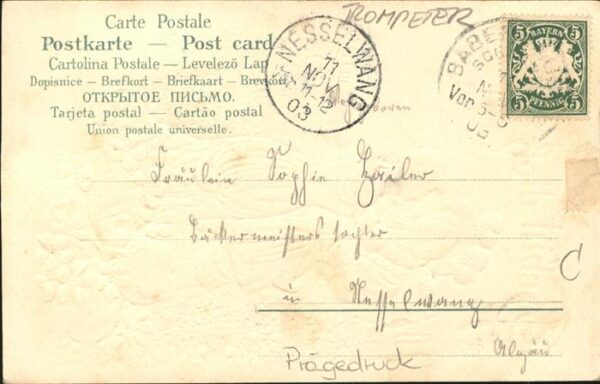 Carte Postale
Postkarte — Post card
Cartolina Postale — Levelező Lap
Dopisnice — Brefkort — Briefkaart — Brevkort
ОТКРЫТОЕ ПИСЬМО.
Tarjeta postal — Cartão postal
Union postale universelle.
TROMPETER
NESSELWANG
11
NOV
11-12
03
BABE
N
Vor. 5-6
03
BAYERN
5 5
5 5
PFENNIG
Fräulein Sophie Zailer
Bäckermeisterstochter
in Nesselwang
Algäu
C
Prägedruck